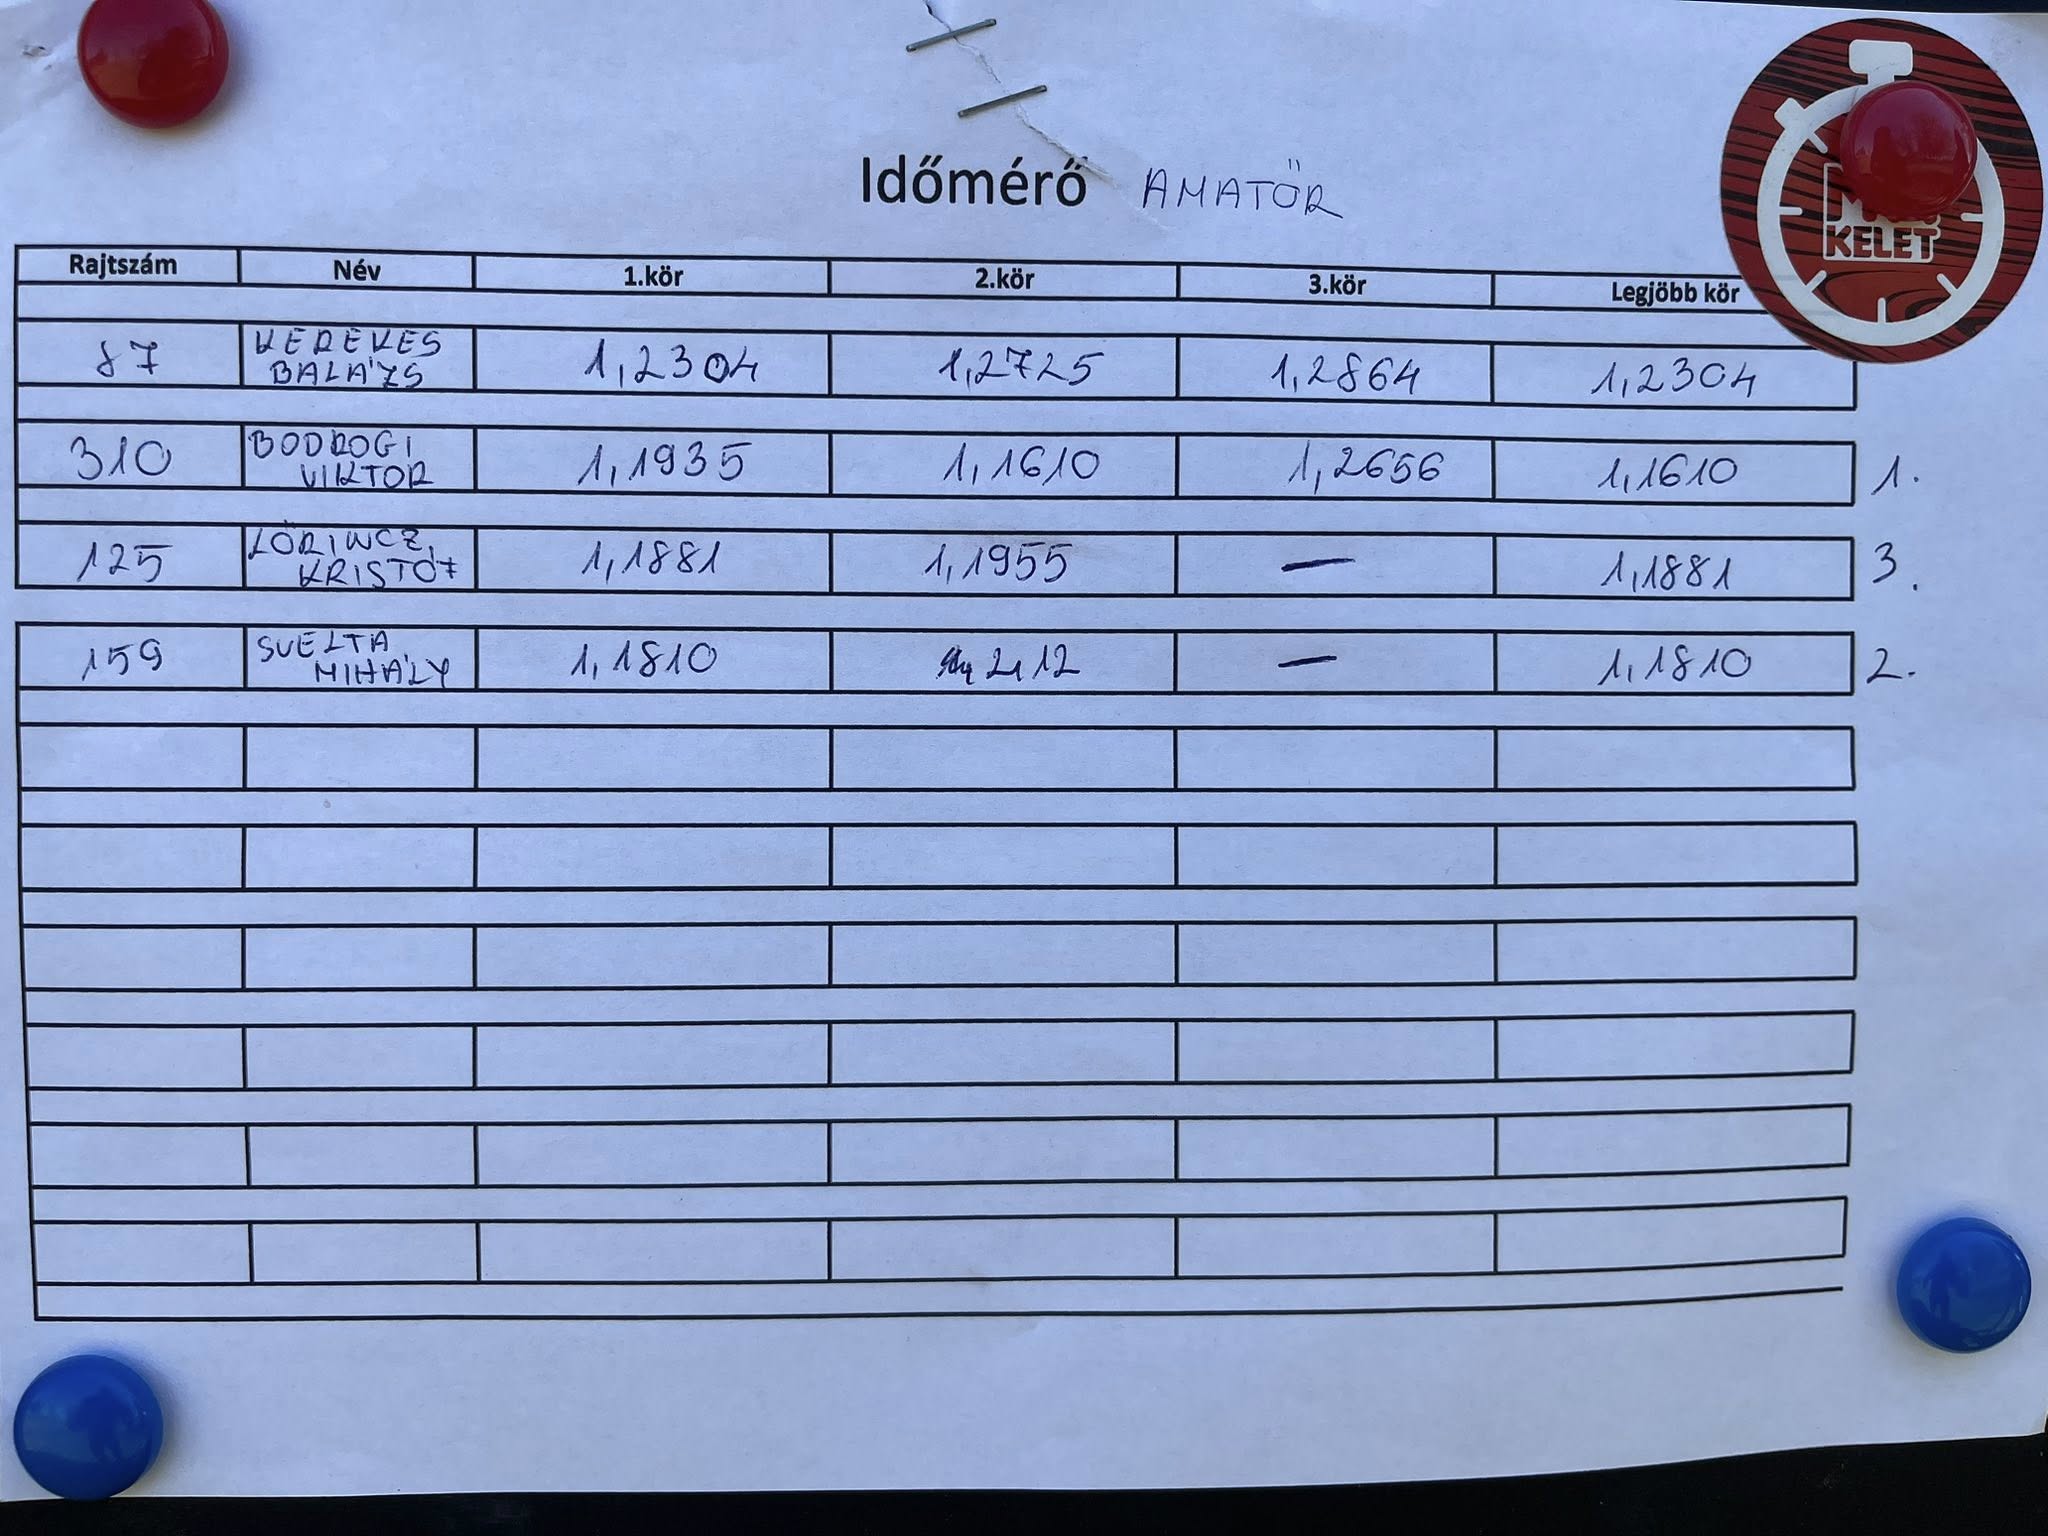 Időmérő AMATŐR
KELET
Rajtszám Név 1.kör 2.kör 3.kör Legjöbb kör
87 KEREKES BALÁZS 1,2304 1,2725 1,2864 1,2304
310 BODROGI VIKTOR 1,1935 1,1610 1,2656 1,1610 1.
125 LŐRINCZ KRISTÓF 1,1881 1,1955 — 1,1881 3.
159 SVELTA MIHÁLY 1,1810 2,12 — 1,1810 2.